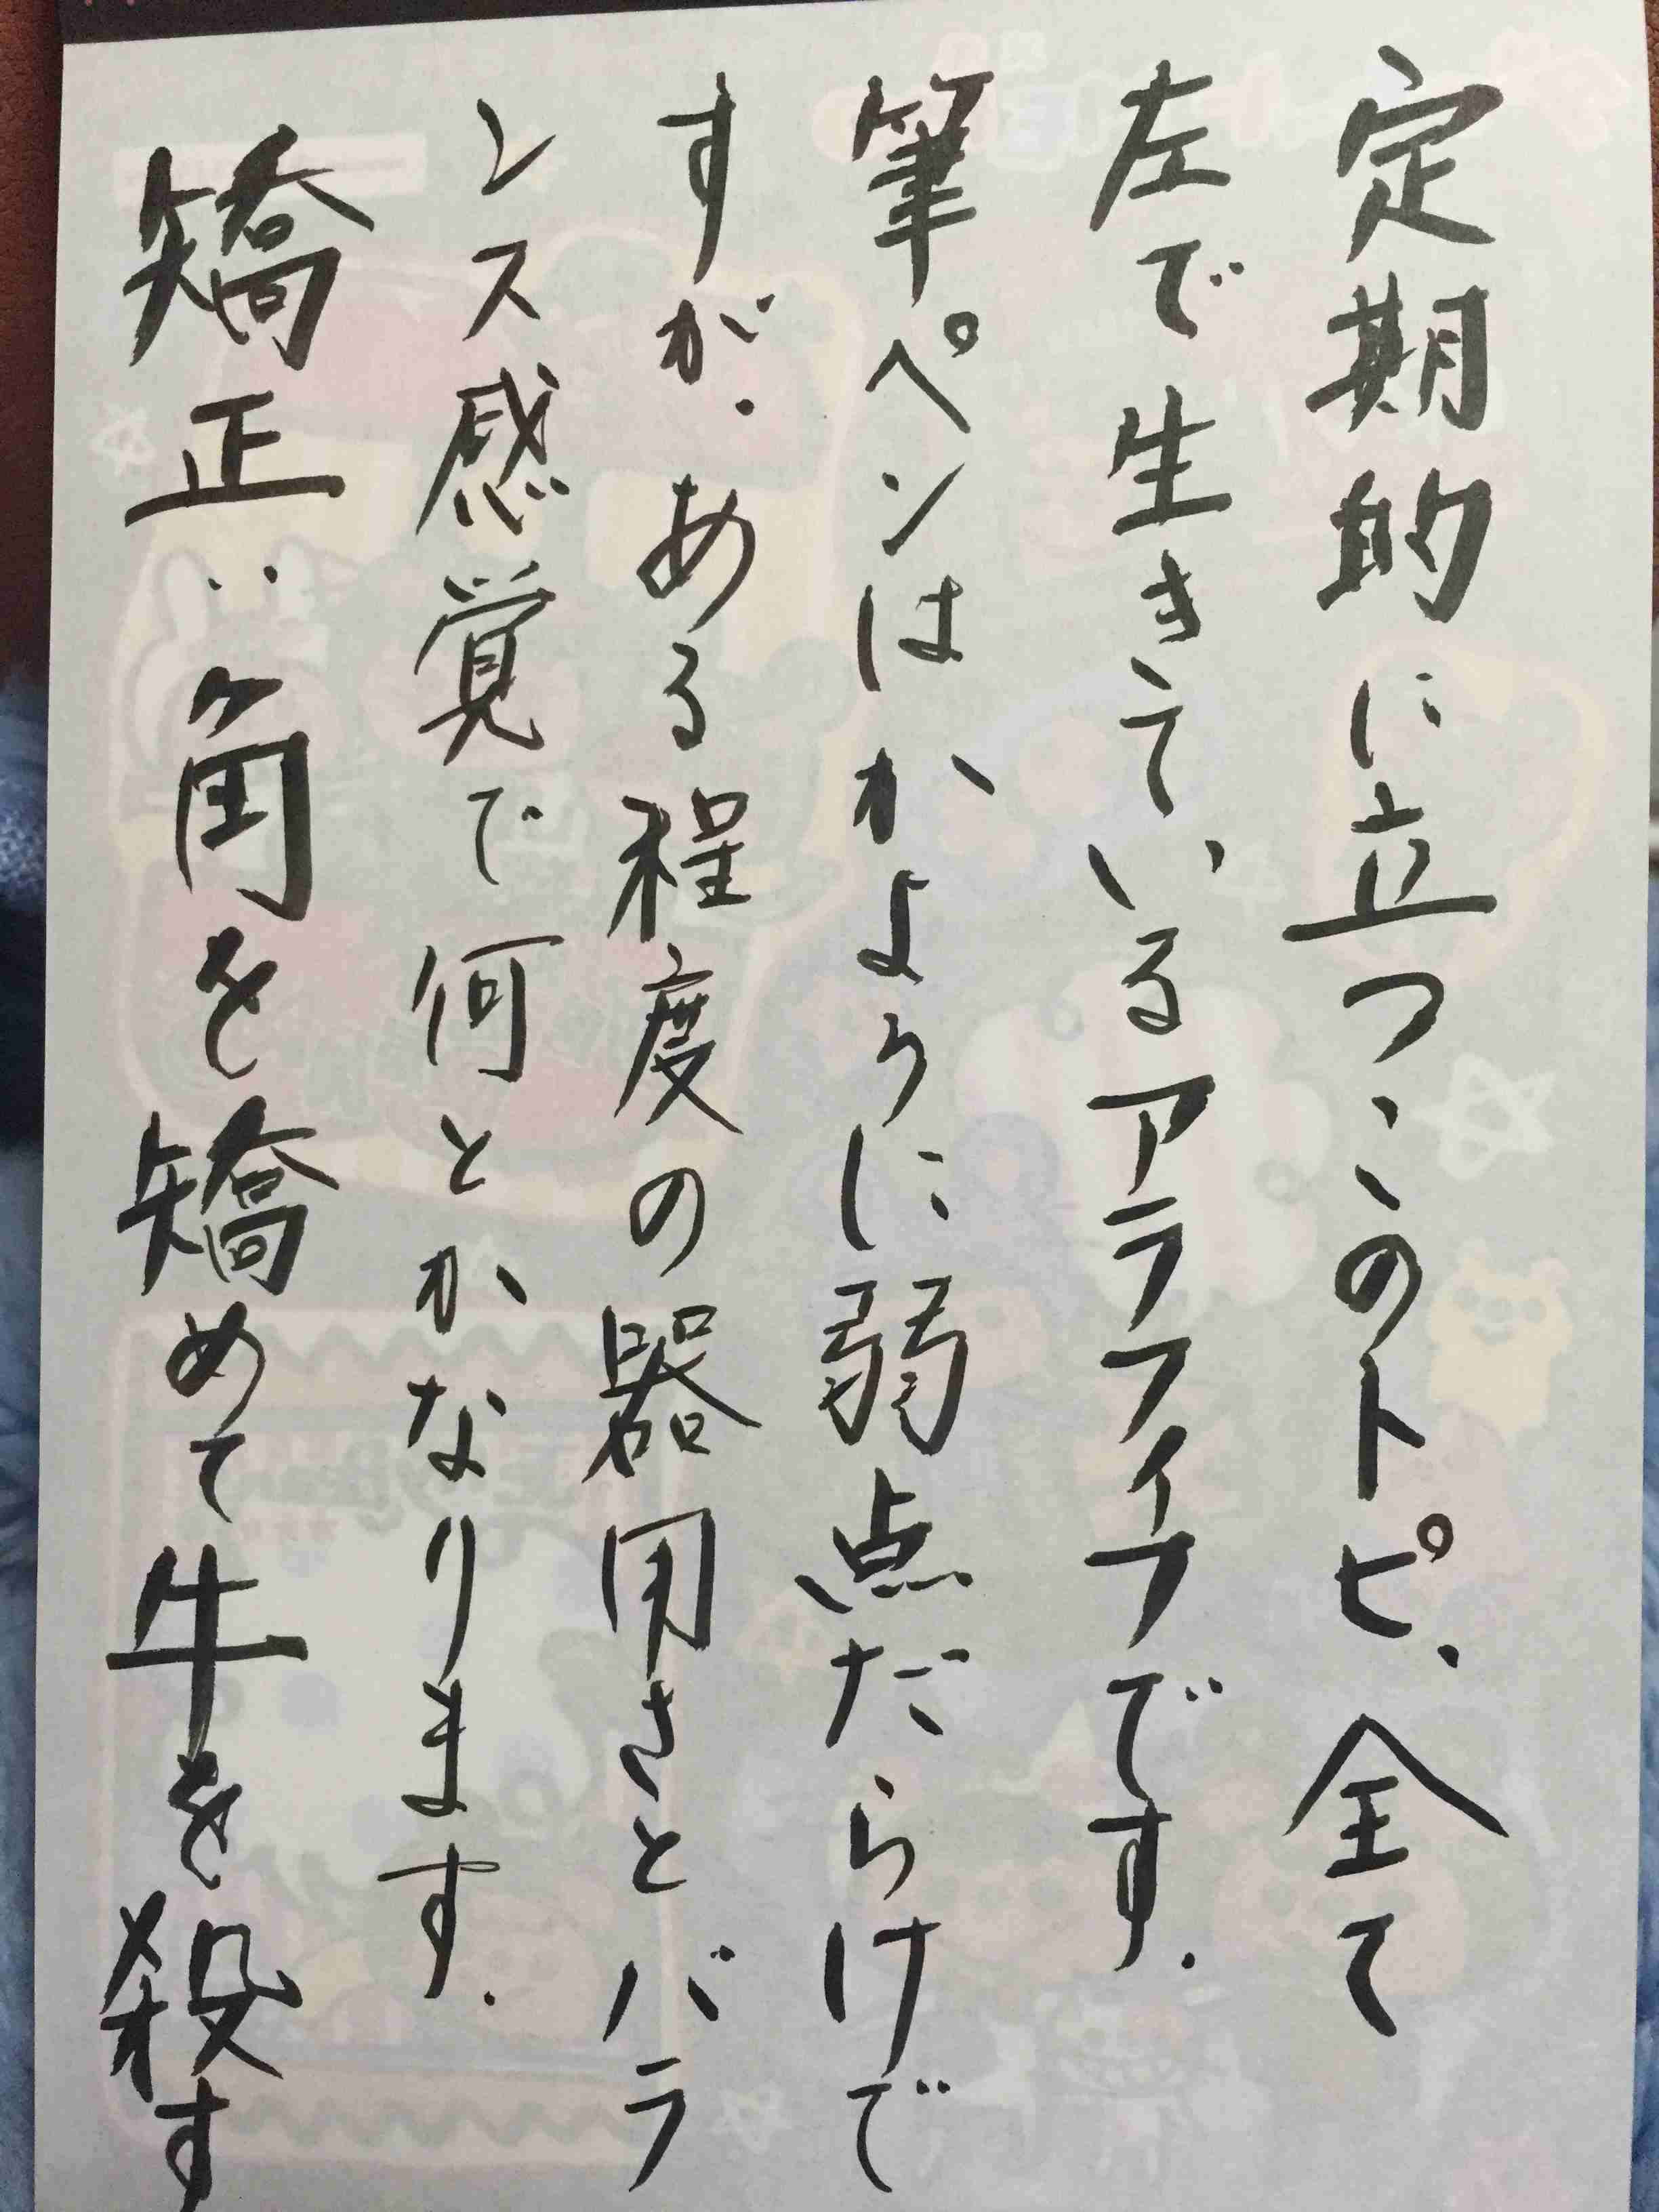 定期的に立つこのトピ、全て
左で生きているアラフィフです。
筆ペンはかように弱点だらけで
すが、ある程度の器用さとバラ
ンス感覚で何とかなります。
矯正：角を矯めて牛を殺す